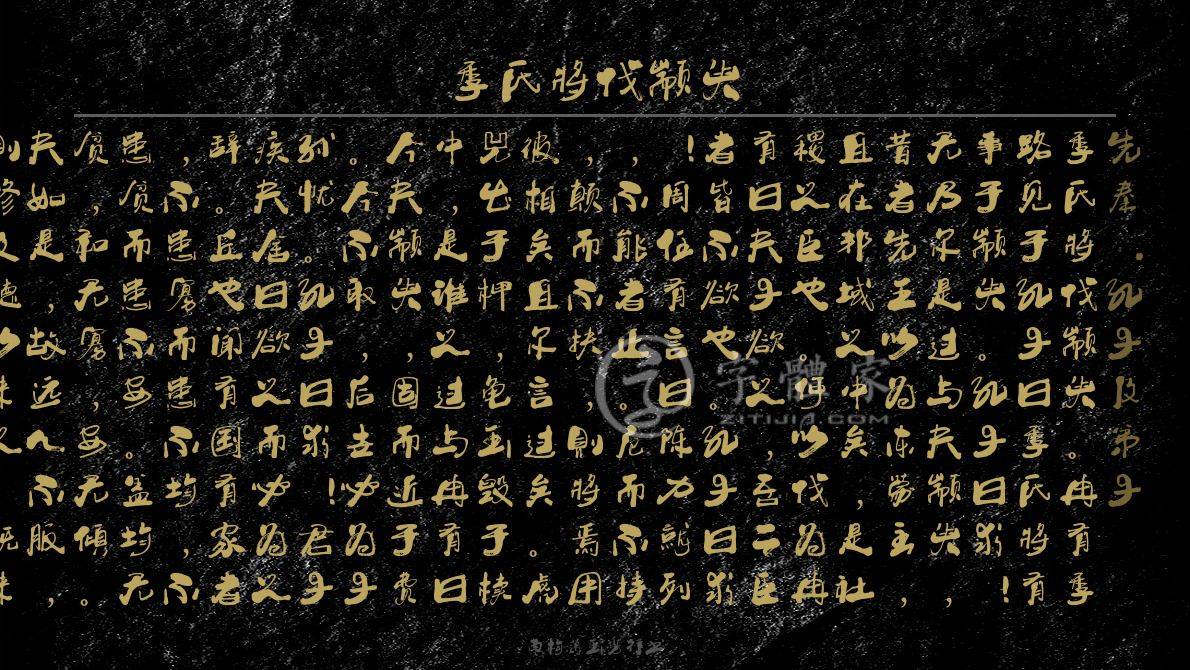 季氏将伐颛臾
先秦.孔子及弟子
季氏将伐颛臾。冉有季
路见于孔子曰季氏将有
事于颛臾。孔子曰求!
无乃尔是过与夫颛臾,
昔者先王以为东蒙主,
且在邦域之中矣,是社
稷之臣也。何以伐为冉
有曰夫子欲之,吾二臣
者皆不欲也。孔子曰求
!周任有言曰陈力就列
,不能者止。危而不持
,颠而不扶,则将焉用
彼相矣且尔言过矣虎
兕出于柙,龟玉毁椟
中,是谁之过与冉有曰
今夫颛臾,固而近于费
。今不取,后世必为子
孙忧。孔子曰求!君子
疾夫舍曰欲之而必为之
辞。丘也闻有国有家者
,不患寡而患不均,不
患贫而患不安。盖均无
贫,和无寡,安无倾。
夫如是,故远人不服,
则修文德以来之。既来
字體家
ZITIJIA.COM